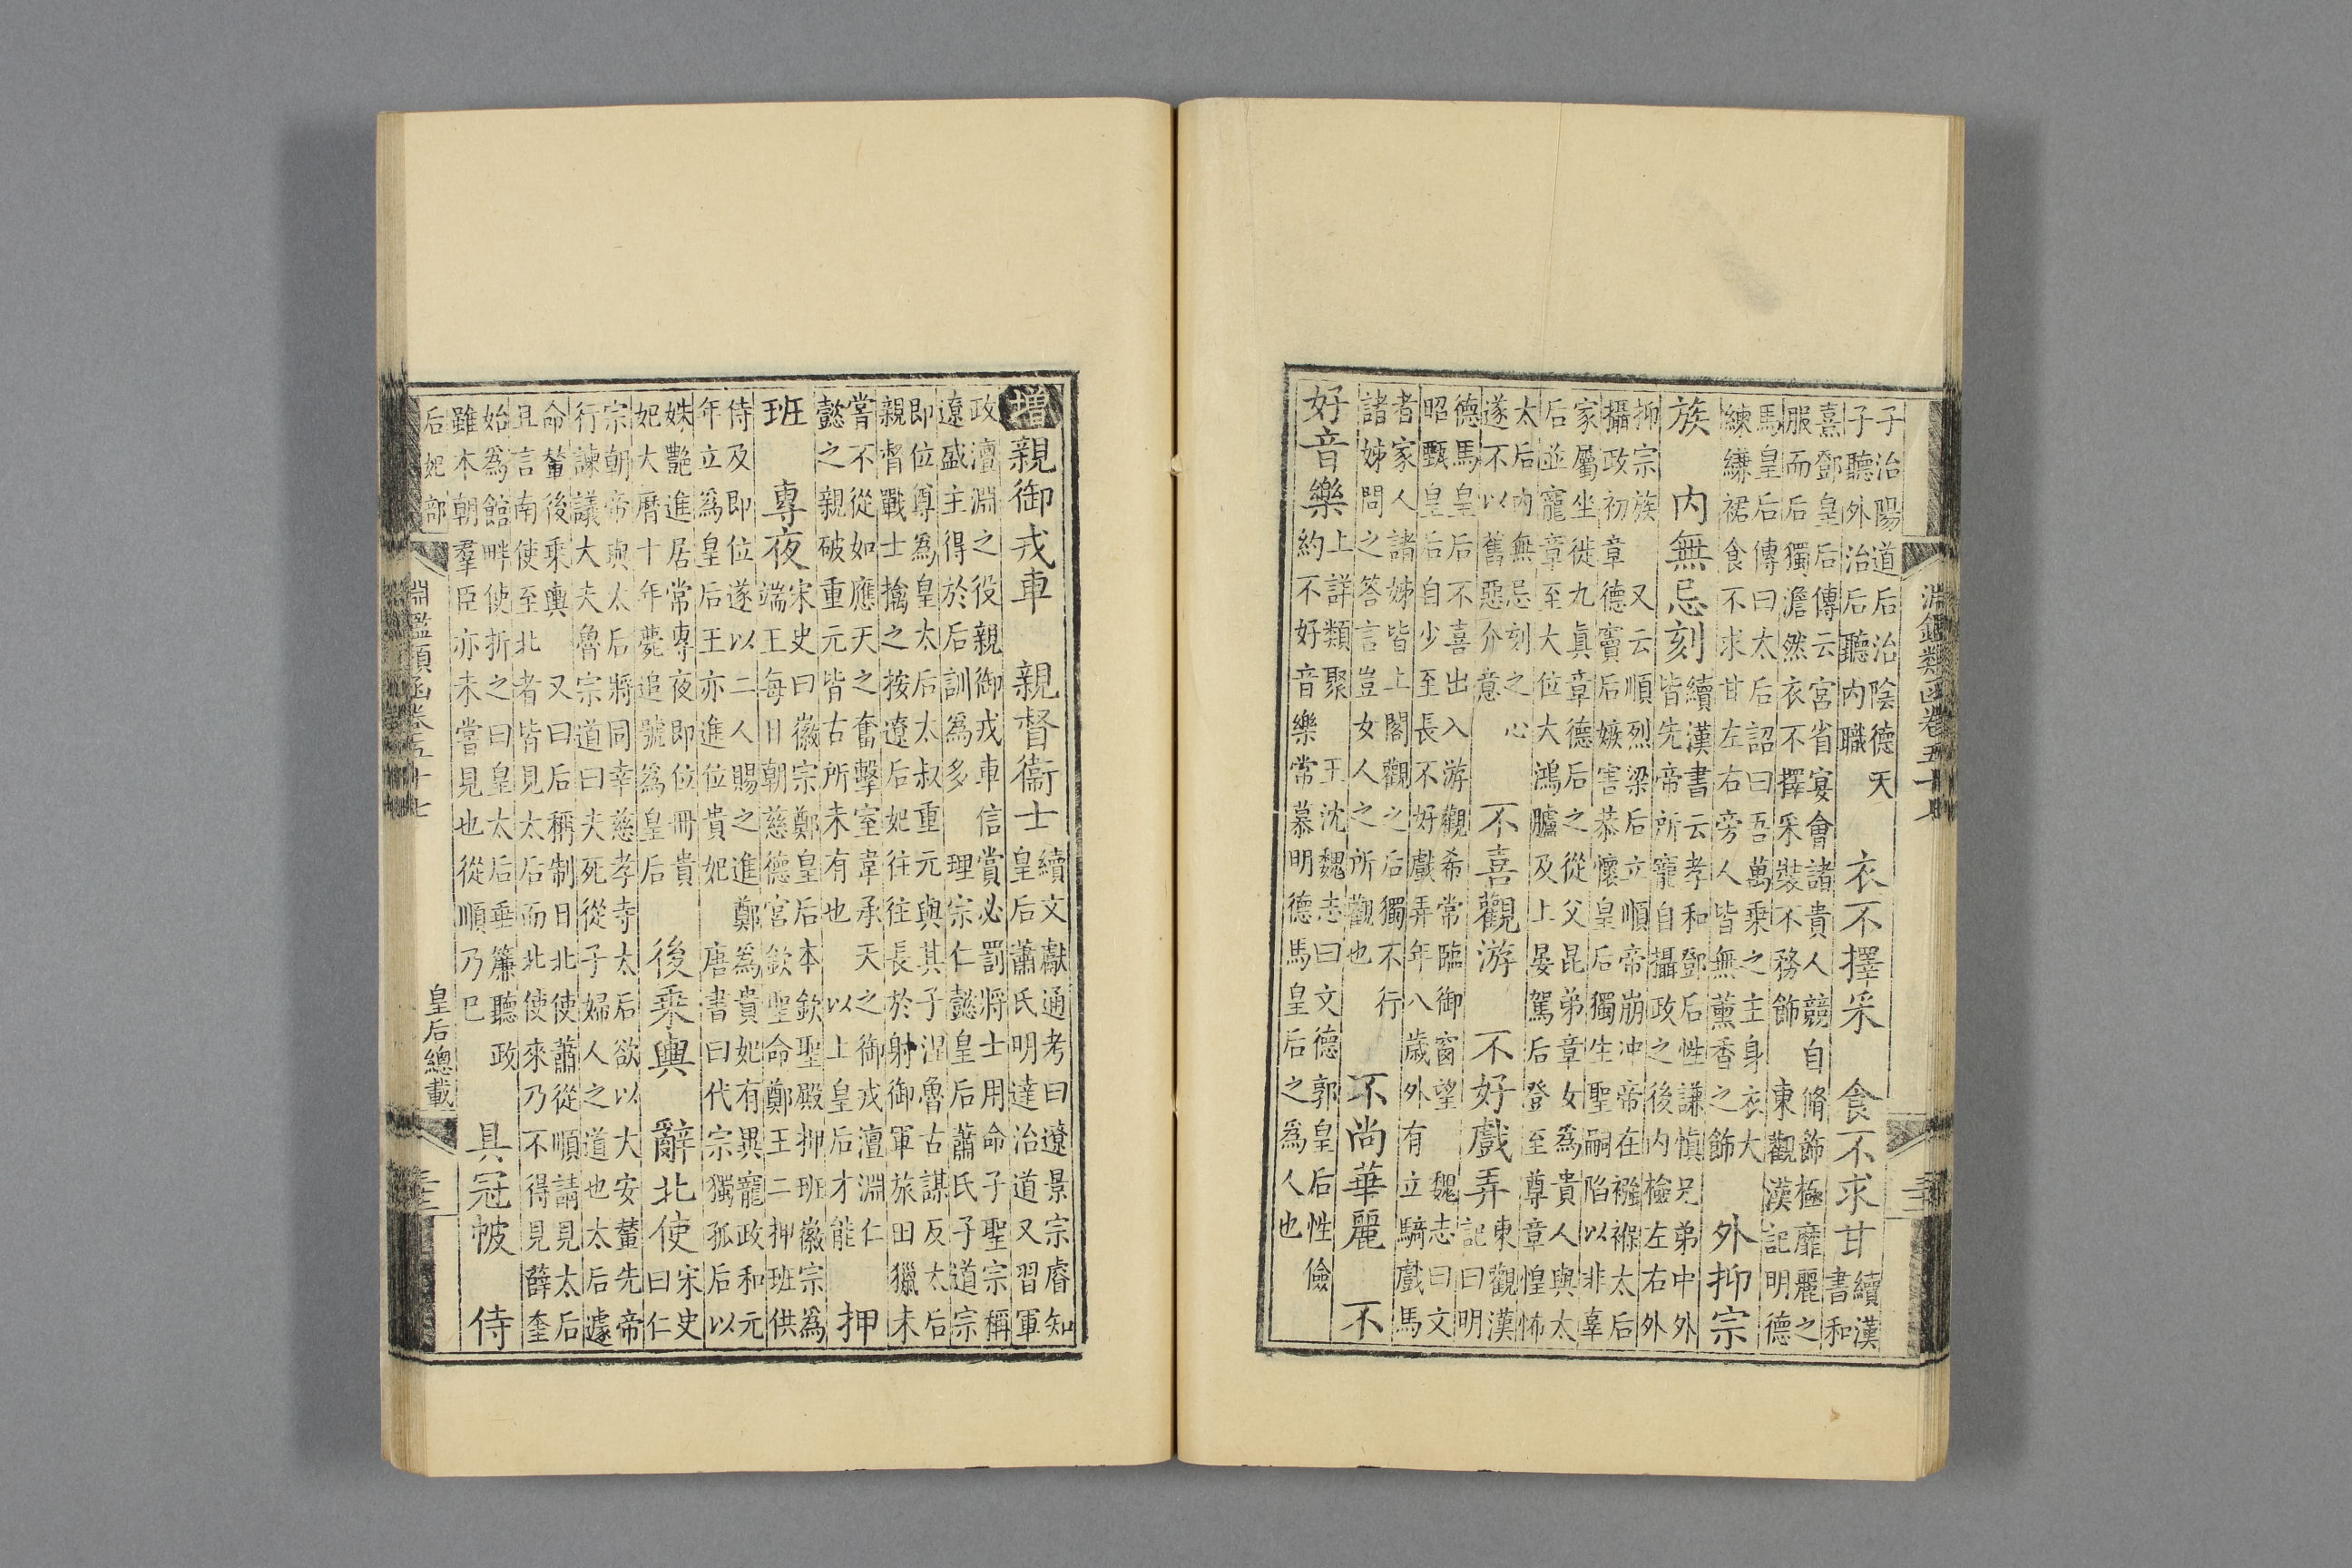 淵鑑類函卷五十七
子治陽道后治陰德天
子聽外治后聽內職
衣不擇采　食不求甘
續漢
書和
熹鄧皇后傳云宮省宴會諸貴人競自脩飾極靡麗之
服而后獨澹然衣不擇采裝不務飾　東觀漢記明德
馬皇后傳曰太后詔曰吾萬乘之主身衣大
練縑裙食不求甘左右旁人皆無薰香之飾
外抑宗
族　內無忌刻
續漢書云孝和鄧后性謙慎兄弟中外
皆先帝所寵自攝政之後內檢左右外
抑宗族　又云順烈梁后立順帝崩冲帝在襁褓太后
攝政初章德竇后嫉害恭懷皇后獨生聖嗣陷以非辜
家屬坐徙九眞章德后之從父昆弟章女為貴人與太
后並寵章至大位大鴻臚及上晏駕后登至尊章惶怖
太后內無忌刻之心
遂不以舊惡介意
不喜觀游　不好戲弄
東觀漢
記曰明
德馬皇后不喜出入游觀希常臨御窗望　魏志曰文
昭甄皇后自少至長不好戲弄年八歲外有立騎戲馬
者家人諸姊皆上閣觀之后獨不行
諸姊問之答言豈女人之所觀也
不尚華麗　不
好音樂
上詳類聚　王沈魏志曰文德郭皇后性儉
約不好音樂常慕明德馬皇后之為人也
增親御戎車　親督衞士
續文獻通考曰遼景宗睿知
皇后蕭氏明達治道又習軍
政澶淵之役親御戎車信賞必罰將士用命子聖宗稱
遼盛主得於后訓為多　理宗仁懿皇后蕭氏子道宗
即位尊為皇太后太叔重元與其子涅魯古謀反太后
親督戰士擒之按遼后妃往往長於射御軍旅田獵未
嘗不從如應天之奮擊室韋承天之御戎澶淵仁
懿之親破重元皆古所未有也　以上皇后才能
押
班　專夜
宋史曰徽宗鄭皇后本欽聖殿押班徽宗為
端王每日朝慈德宮欽聖命鄭王二押班供
侍及即位遂以二人賜之進鄭為貴妃有異寵政和元
年立為皇后王亦進位貴妃　唐書曰代宗獨孤后以
姝艷進居常專夜即位冊貴
妃大曆十年薨追號為皇后
後乘輿　辭北使
宋史
曰仁
宗朝帝與太后將同幸慈孝寺太后欲以大安輦先帝
行諫議大夫魯宗道曰夫死從子婦人之道也太后遽
命輦後乘輿　又曰后稱制日北使蕭從順請見太后
且言南使至北者皆見太后而北使來乃不得見薛奎
始為館畔使折之曰皇太后垂簾聽政
雖本朝羣臣亦未嘗見也從順乃已
具冠帔　侍
后妃部
淵鑑類函卷五十七
皇后總載